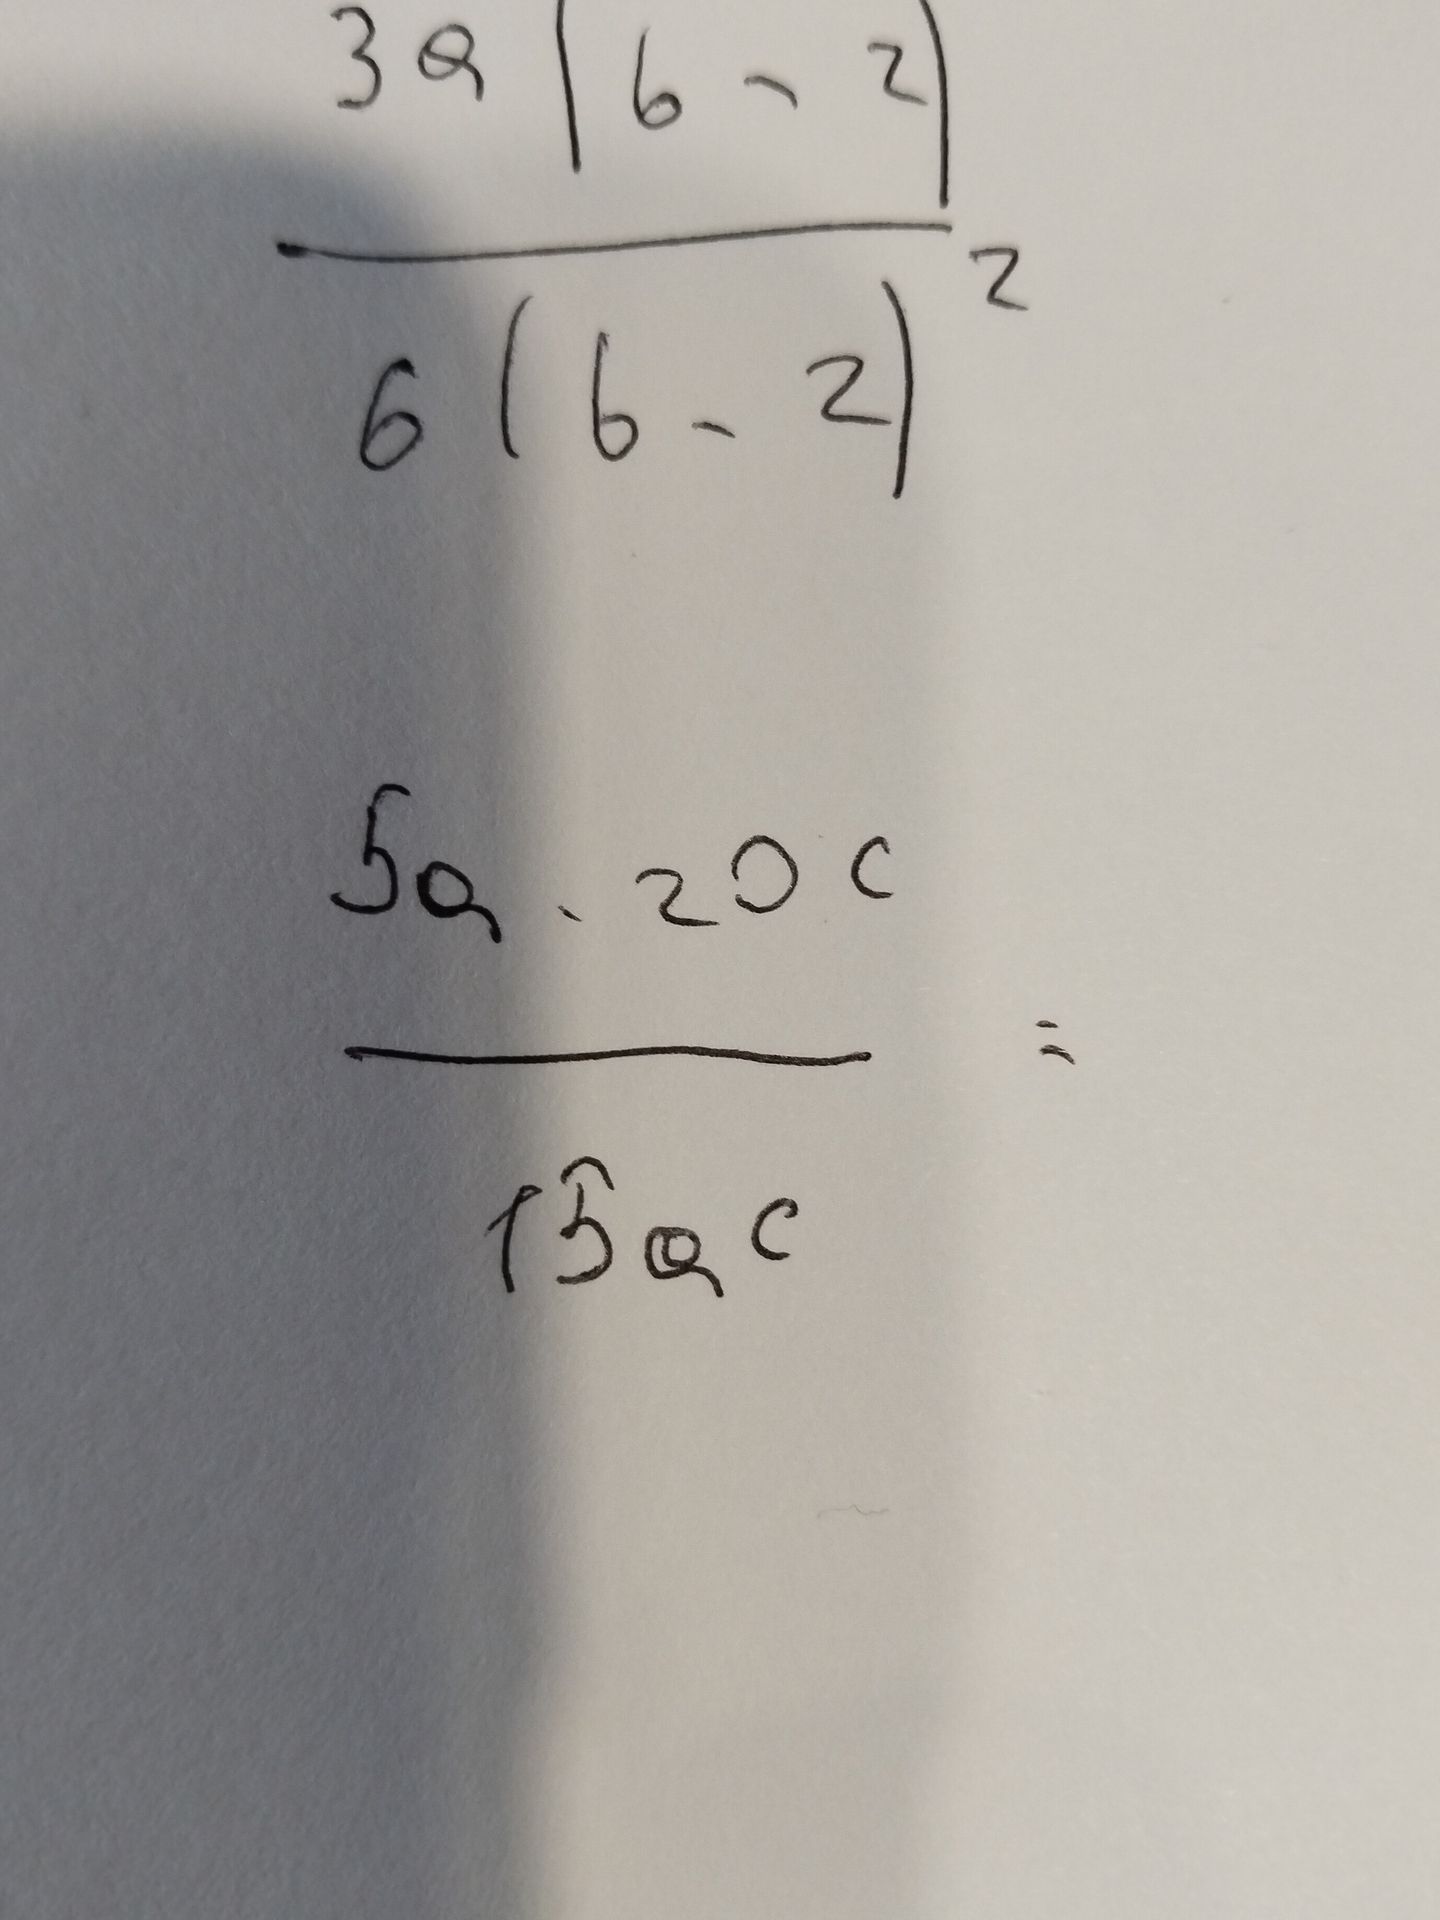 3a(b-2)
6(b-2)²
5a-20c
=
15ac